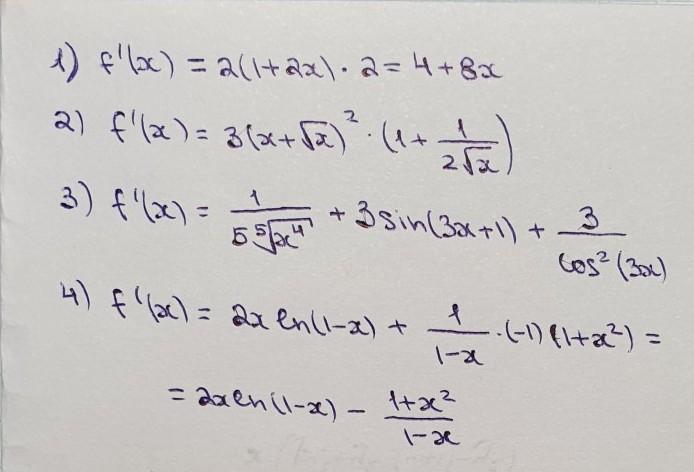 1) f'(x) = 2(1+2x)·2 = 4+8x
2) f'(x) = 3(x+√x)²·(1+1/(2√x))
3) f'(x) = 1/(5⁵√x⁴) + 3sin(3x+1) + 3/cos²(3x)
4) f'(x) = 2x ln(1-x) + 1/(1-x)·(-1)(1+x²) =
= 2x ln(1-x) - (1+x²)/(1-x)